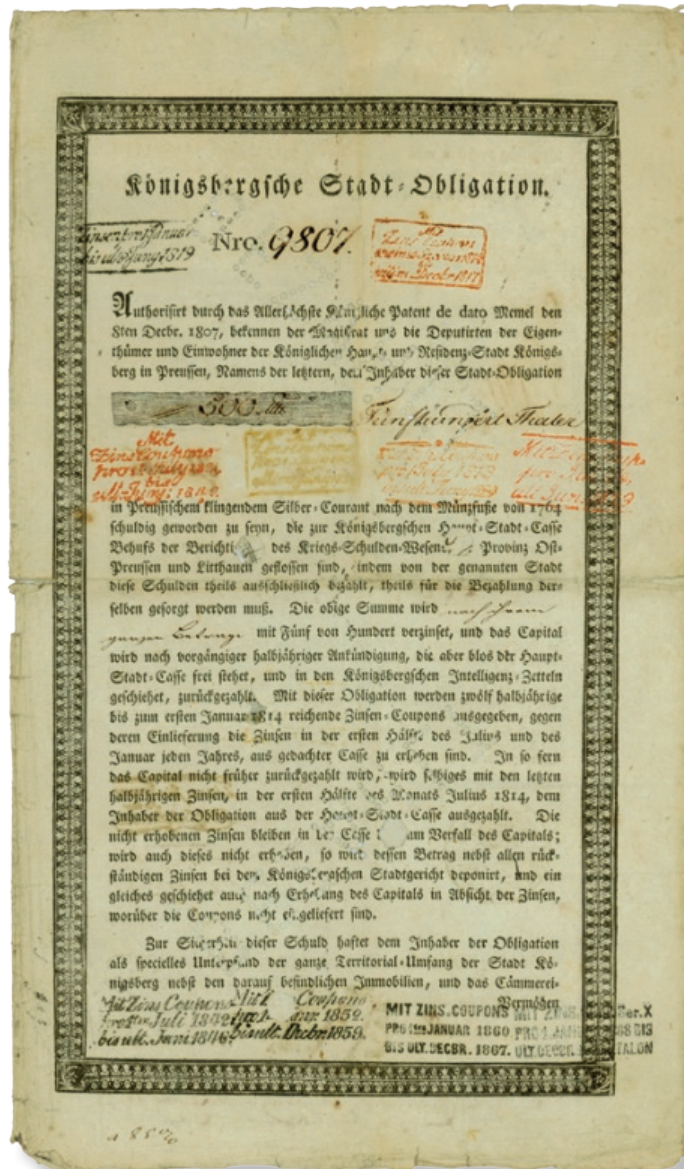 Königsbergsche Stadt-Obligation.
Zinsen bis Juny 1819
Nro. 9807.
Authorisirt durch das Allerhöchste Königliche Patent de dato Memel den
8ten Decbr. 1807, bekennen der Magistrat und die Deputirten der Eigen-
thümer und Einwohner der Königlichen Haupt- und Residenz-Stadt Königs-
berg in Preussen, Namens der letztern, dem Inhaber dieser Stadt-Obligation
500
Fünfhundert Thaler
Mit
Zins Coupons
bis
in Preussischem klingendem Silber-Courant nach dem Münzfuße von 1764
schuldig geworden zu seyn, die zur Königsbergschen Haupt-Stadt-Casse
Behufs der Berichti des Kriegs-Schulden-Wesens Provinz Ost-
Preussen und Litthauen geflossen sind, indem von der genannten Stadt
diese Schulden theils ausschließlich bezahlt, theils für die Bezahlung der-
selben gesorgt werden muß. Die obige Summe wird nach ihrem
ganzen Betrage mit Fünf von Hundert verzinset, und das Capital
wird nach vorgängiger halbjähriger Ankündigung, die aber blos der Haupt-
Stadt-Casse frei stehet, und in den Königsbergschen Intelligenz-Zetteln
geschiehet, zurückgezahlt. Mit dieser Obligation werden zwölf halbjährige
bis zum ersten Januar 1814 reichende Zinsen-Coupons ausgegeben, gegen
deren Einlieferung die Zinsen in der ersten Hälfte des Julius und des
Januar jeden Jahres, aus gedachter Casse zu erheben sind. In so fern
das Capital nicht früher zurückgezahlt wird, wird selbiges mit den letzten
halbjährigen Zinsen, in der ersten Hälfte des Monats Julius 1814, dem
Inhaber der Obligation aus der Haupt-Stadt-Casse ausgezahlt. Die
nicht erhobenen Zinsen bleiben in der Casse zum Verfall des Capitals;
wird auch dieses nicht erhoben, so wird dessen Betrag nebst allen rück-
ständigen Zinsen bei dem Königsbergschen Stadtgericht deponirt, und ein
gleiches geschiehet auch nach Erhebung des Capitals in Absicht der Zinsen,
worüber die Coupons nicht eingeliefert sind.
Zur Sicherheit dieser Schuld haftet dem Inhaber der Obligation
als specielles Unterpfand der ganze Territorial-Umfang der Stadt Kö-
nigsberg nebst den darauf befindlichen Immobilien, und das Cämmerei-
Vermögen
Mit Zins Coupons
pro 1ten Juli 1842
bis ult. Juni 1846
Mit Coupons
pro 1. Janr. 1852.
bis ult. Decbr. 1859.
MIT ZINS. COUPONS
PRO 1ten JANUAR 1860
BIS ULT. DECBR. 1867.
MIT ZINS Ser. X
PRO 1. JANUAR BIS
ULT. DECBR. TALON